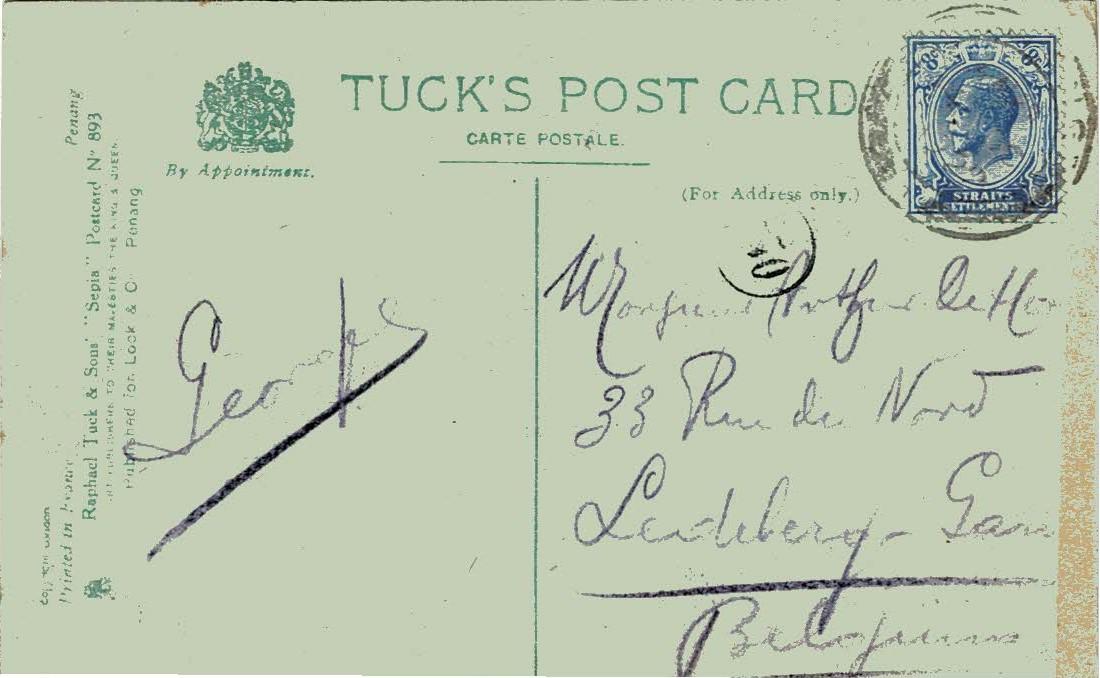 TUCK'S POST CARD
CARTE POSTALE.
By Appointment.
(For Address only.)
8c 8c
STRAITS
SETTLEMENTS
Penang
Raphael Tuck & Sons' "Sepia" Postcard No 893
ART PUBLISHERS TO THEIR MAJESTIES THE KING & QUEEN
Published for Lock & Co Penang
Printed in France
Georges
Arthur
33 Rue du Nord
Ledeberg - Gan
Belgium